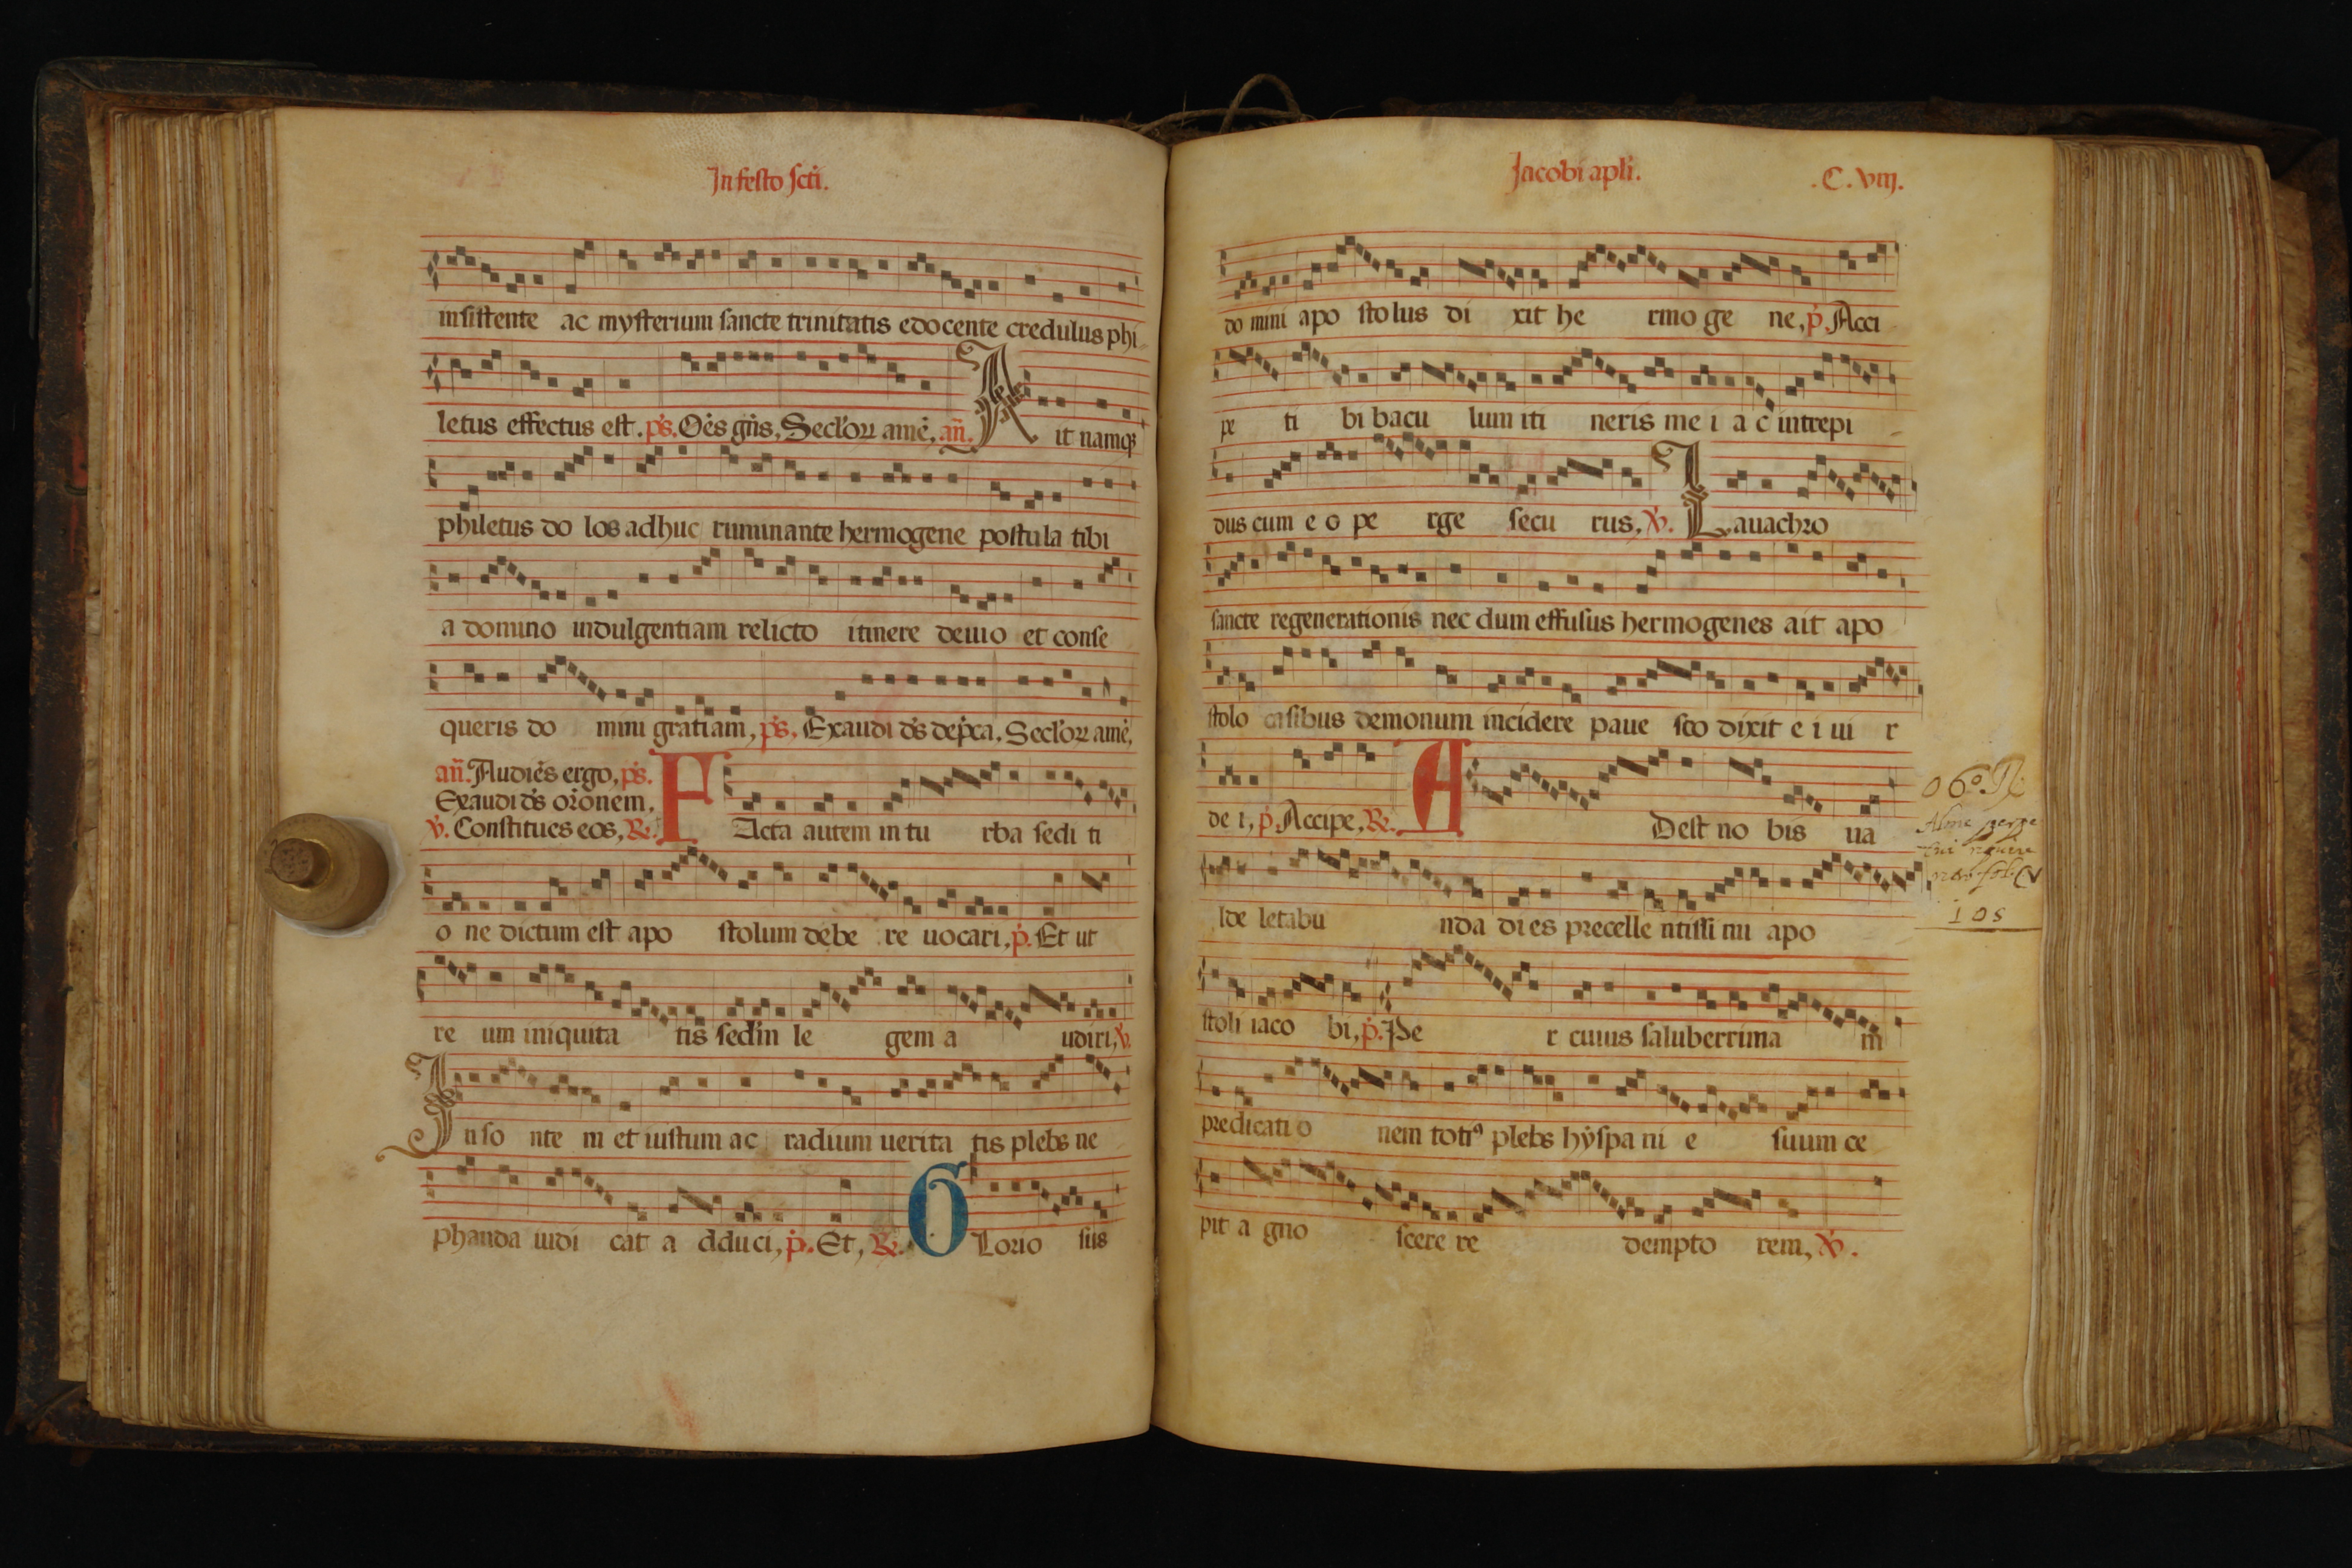 In festo scti.
insistente ac mysterium sancte trinitatis edocente credulus phi
letus effectus est. ps. Oēs gn̄s, Secl'oꝝ amē, añ. A it namqꝫ
philetus do los adhuc ruminante hermogene postula tibi
a domino indulgentiam relicto itinere deuio et conse
queris do mini gratiam, ps. Exaudi ds dep̄ca. Secl'oꝝ amē,
añ. Audiēs ergo, ps.
Exaudi ds or̄onem.
℣. Constitues eos, ℟. F Acta autem in tu rba sedi ti
o ne dictum est apo stolum debe re uocari, p̄. Et ut
re um iniquita tis sedin le gem a udiri, ℣.
In so nte m et iustum ac radium uerita tis plebs ne
phanda iudi cat a dduci, p̄. Et, ℟. G Lorio sus
Jacobi apli. .C.viij.
do mini apo stolus di xit he rmo ge ne, p̄. Acci
pe ti bi bacu lum iti neris me i a c intrepi
dus cum e o pe rge secu rus, ℣. Lauachro
sancte regenerationis nec dum effusus hermogenes ait apo
stolo casibus demonum incidere paue sco dixit e i ui r
de i, p̄. Accipe, ℟. A Dest no bis ua
lde letabu nda di es precelle ntissi mi apo
stoli iaco bi, p̄. Pe r cuius saluberrima m
predicati o nem totiꝰ plebs hyspa ni e suum ce
pit a gno scere re dempto rem, ℣.
06º ℟
Alme perpe
105